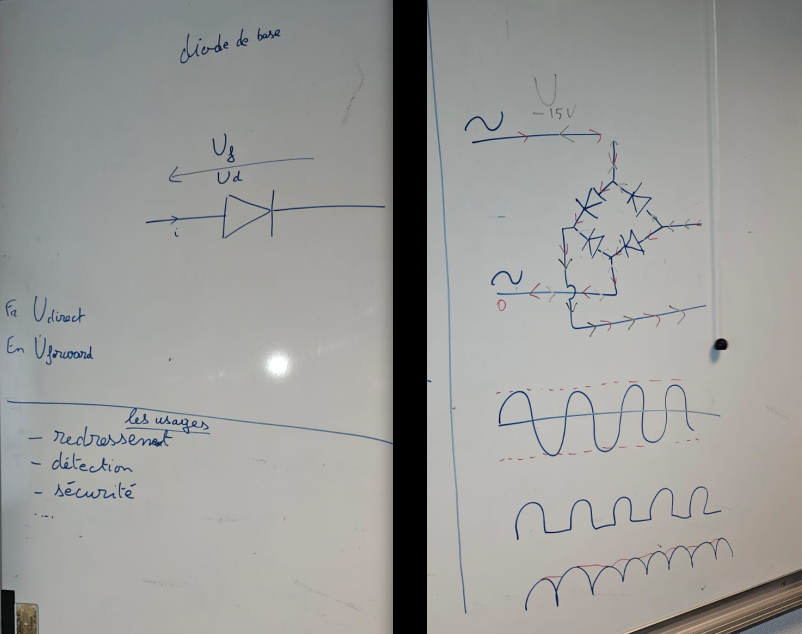 diode de base
Uf
Ud
i
Fr Udirect
En Uforward
les usages
- redressement
- détection
- sécurité
....
U
-15V
~
~
0